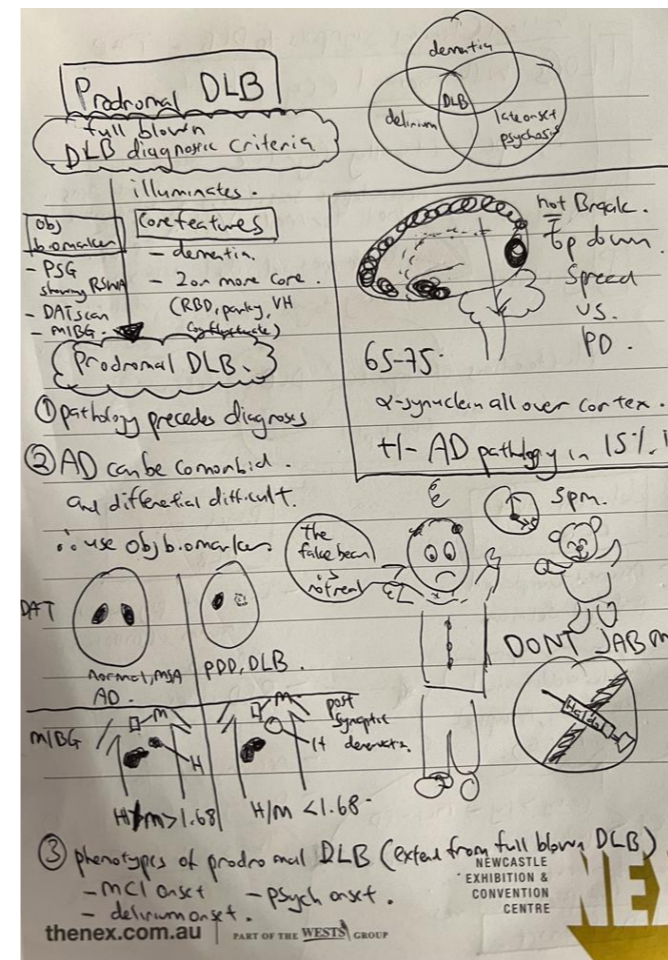 Prodromal DLB
full blown
DLB diagnostic criteria
dementia
delirium
DLB
late onset
psychosis
illuminates.
Obj
biomarker
- PSG
showing RSWA
- DATscan
- MIBG.
Core features
- dementia.
- 2 or more core.
(RBD, parky, VH
cog fluctuate)
Prodromal DLB.
not Braak.
Top down.
Spread
vs.
PD.
65-75.
α-synuclein all over cortex.
+/- AD pathology in 15%.
① pathology precedes diagnoses
② AD can be comorbid.
and differential difficult.
∴ use Obj biomarker
The
false bear
is
not real
5pm.
DONT JAB M
Haldol
DAT
normal, MSA
AD.
PDD, DLB.
MIBG
M
H
H/M>1.68
M
H
post
synaptic
H/M <1.68.
③ phenotypes of prodromal DLB (extend from full blown DLB)
- MCI onset - psych onset.
- delirium onset.
NEWCASTLE
EXHIBITION &
CONVENTION
CENTRE
NEX
thenex.com.au | PART OF THE WESTS GROUP